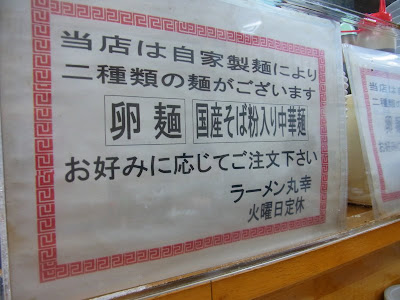 当店は自家製麺により
二種類の麺がございます
卵麺 国産そば粉入り中華麺
お好みに応じてご注文下さい
ラーメン丸幸
火曜日定休
当店は自
二種類の
卵
お好み